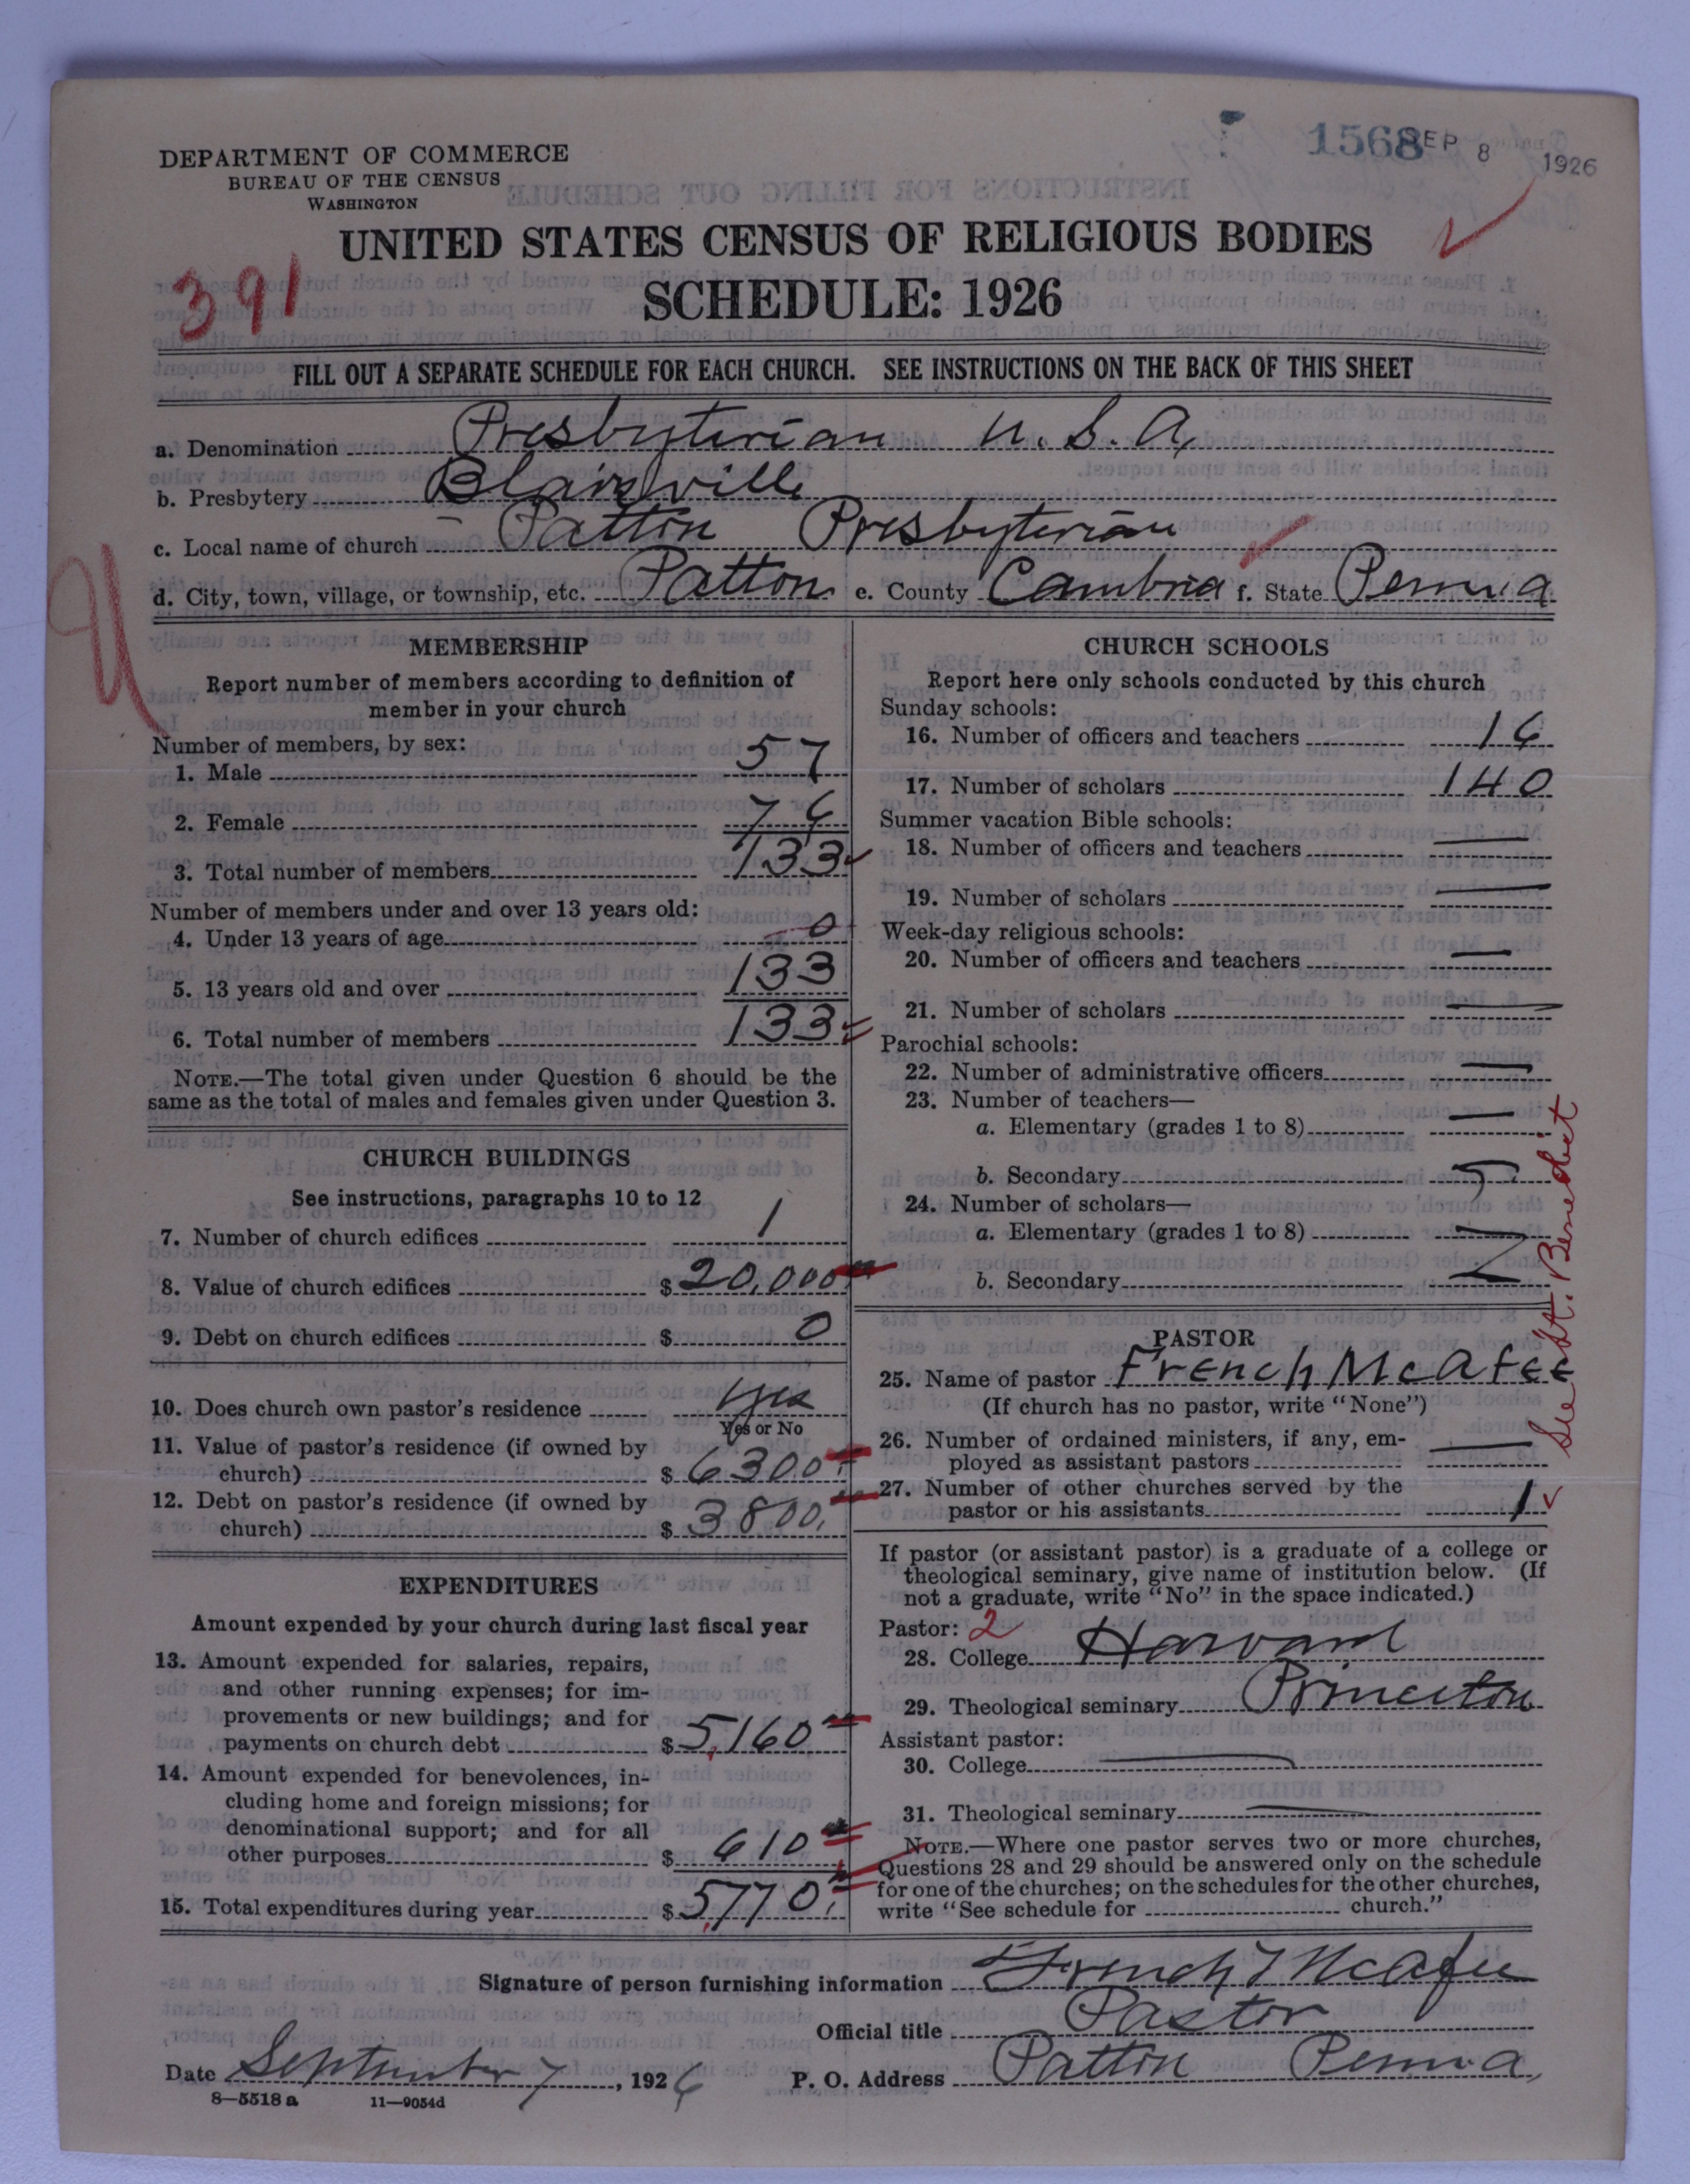 1568 SEP 8 1926
DEPARTMENT OF COMMERCE
BUREAU OF THE CENSUS
WASHINGTON
UNITED STATES CENSUS OF RELIGIOUS BODIES
391
SCHEDULE: 1926
FILL OUT A SEPARATE SCHEDULE FOR EACH CHURCH. SEE INSTRUCTIONS ON THE BACK OF THIS SHEET
a. Denomination Presbyterian U.S.A.
b. Presbytery Blairsville
c. Local name of church Patton Presbyterian
d. City, town, village, or township, etc. Patton e. County Cambria f. State Penna
MEMBERSHIP
Report number of members according to definition of
member in your church
Number of members, by sex:
1. Male 57
2. Female 76
3. Total number of members 133
Number of members under and over 13 years old:
4. Under 13 years of age 0
5. 13 years old and over 133
6. Total number of members 133
NOTE.—The total given under Question 6 should be the
same as the total of males and females given under Question 3.
CHURCH BUILDINGS
See instructions, paragraphs 10 to 12
7. Number of church edifices 1
8. Value of church edifices $ 20,000
9. Debt on church edifices $ 0
10. Does church own pastor's residence yes
Yes or No
11. Value of pastor's residence (if owned by
church) $ 6300
12. Debt on pastor's residence (if owned by
church) $ 3800
EXPENDITURES
Amount expended by your church during last fiscal year
13. Amount expended for salaries, repairs,
and other running expenses; for im-
provements or new buildings; and for
payments on church debt $ 5,160
14. Amount expended for benevolences, in-
cluding home and foreign missions; for
denominational support; and for all
other purposes $ 610
15. Total expenditures during year $ 5,770
CHURCH SCHOOLS
Report here only schools conducted by this church
Sunday schools:
16. Number of officers and teachers 16
17. Number of scholars 140
Summer vacation Bible schools:
18. Number of officers and teachers —
19. Number of scholars —
Week-day religious schools:
20. Number of officers and teachers —
21. Number of scholars —
Parochial schools:
22. Number of administrative officers —
23. Number of teachers—
a. Elementary (grades 1 to 8) —
b. Secondary —
24. Number of scholars—
a. Elementary (grades 1 to 8) —
b. Secondary —
PASTOR
25. Name of pastor French McAfee
(If church has no pastor, write "None")
26. Number of ordained ministers, if any, em-
ployed as assistant pastors —
27. Number of other churches served by the
pastor or his assistants 1
See St. Benedict
If pastor (or assistant pastor) is a graduate of a college or
theological seminary, give name of institution below. (If
not a graduate, write "No" in the space indicated.)
Pastor: 2
28. College Harvard
29. Theological seminary Princeton
Assistant pastor:
30. College —
31. Theological seminary —
NOTE.—Where one pastor serves two or more churches,
Questions 28 and 29 should be answered only on the schedule
for one of the churches; on the schedules for the other churches,
write "See schedule for church."
Signature of person furnishing information French McAfee
Official title Pastor
Date September 7, 1926 P. O. Address Patton Penna
8—5518 a 11—9054d